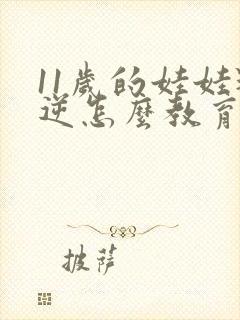 11歲的娃娃
逆怎麼教育
披薩